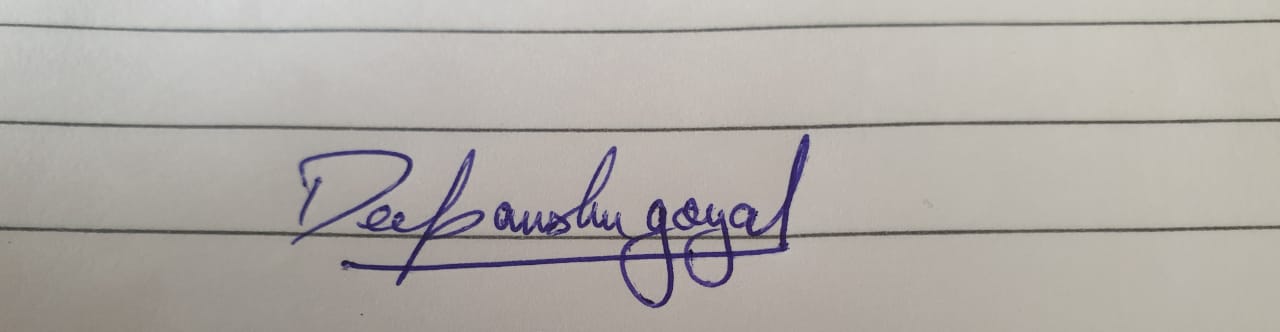 Deepanshu goyal